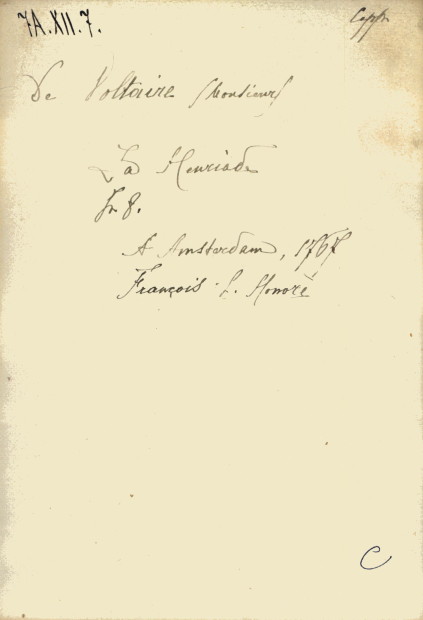 7A.XII.7.
De Voltaire (Monsieur)
La Henriade
In 8.
A Amsterdam, 1767
François L. Honoré
C